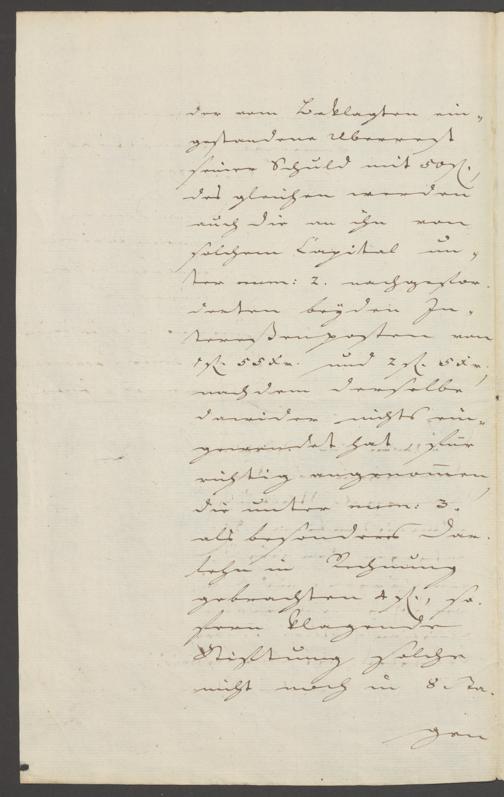 der vom Beklagten ein„
gestandene Überrest
seiner Schuld mit 50 fl.,
des gleichen werden
auch die an ihn von
solchem Capital un„
ter num: 2. nachgefor„
derten beyden In„
teressenposten von
1 fl. 55 Xr. und 2 fl. 5 Xr.,
nachdem derselbe
dawider nichts ein„
gewendet hat, für
richtig angenommen,
die unter num: 3.
als besonders Dar„
lehn in Rechnung
gebrachten 4 fl., so„
fern klagende
Stiftung solche
nicht noch in 8 Ta„
gen